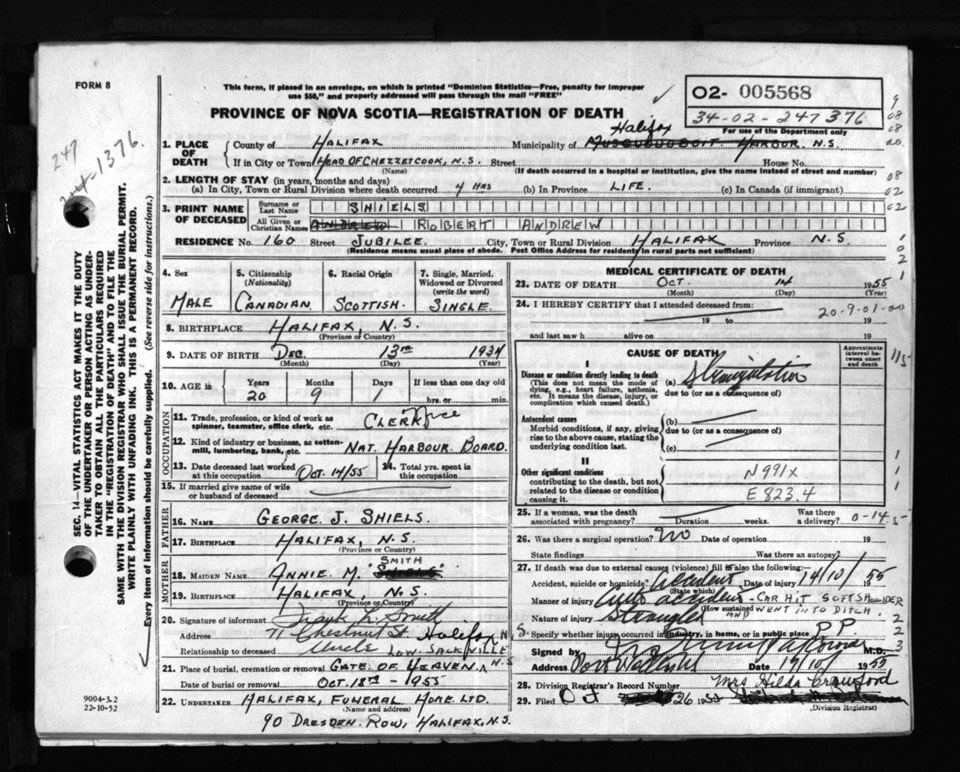 FORM 8
This form, if placed in an envelope, on which is printed "Dominion Statistics—Free, penalty for improper
use $50," and properly addressed will pass through the mail "FREE"
PROVINCE OF NOVA SCOTIA—REGISTRATION OF DEATH
O2- 005568
34-02-247376
For use of the Department only
247
1376
SEC. 14—VITAL STATISTICS ACT MAKES IT THE DUTY
OF THE UNDERTAKER OR PERSON ACTING AS UNDER-
TAKER TO OBTAIN ALL THE PARTICULARS REQUIRED
IN THE "REGISTRATION OF DEATH" AND TO FILE THE
SAME WITH THE DIVISION REGISTRAR WHO SHALL ISSUE THE BURIAL PERMIT.
WRITE PLAINLY WITH UNFADING INK. THIS IS A PERMANENT RECORD.
Every item of information should be carefully supplied. (See reverse side for instructions.)
1. PLACE OF DEATH
County of HALIFAX Municipality of Halifax MUSQUODOBOIT HARBOR N.S.
If in City or Town HEAD OF CHEZZETCOOK, N.S. Street House No.
(Name) (If death occurred in a hospital or institution, give the name instead of street and number)
2. LENGTH OF STAY (in years, months and days)
(a) In City, Town or Rural Division where death occurred 4 HRS (b) In Province LIFE. (c) In Canada (if immigrant)
3. PRINT NAME OF DECEASED
Surname or Last Name SHIELS
All Given or Christian Names ANDREW ROBERT ANDREW
RESIDENCE No. 160 Street JUBILEE City, Town or Rural Division HALIFAX Province N.S.
(Residence means usual place of abode. Post Office Address for residents in rural parts not sufficient)
4. Sex 5. Citizenship (Nationality) 6. Racial Origin 7. Single, Married, Widowed or Divorced (write the word)
MALE CANADIAN SCOTTISH. SINGLE.
8. BIRTHPLACE HALIFAX, N.S.
(Province or Country)
9. DATE OF BIRTH DEC. 13TH 1934
(Month) (Day) (Year)
10. AGE in Years Months Days If less than one day old
20 9 hrs. or min.
OCCUPATION
11. Trade, profession, or kind of work as
spinner, teamster, office clerk, etc. CLERK office
12. Kind of industry or business, as cotton-
mill, lumbering, bank, etc. NAT. HARBOUR BOARD.
13. Date deceased last worked
at this occupation OCT. 14/55 14. Total yrs. spent in
this occupation
15. If married give name of wife
or husband of deceased
FATHER
16. NAME GEORGE J. SHIELS.
17. BIRTHPLACE HALIFAX, N.S.
(Province or Country)
MOTHER
18. MAIDEN NAME ANNIE M. SMITH
19. BIRTHPLACE HALIFAX, N.S.
(Province or Country)
20. Signature of informant Frank L. Smith
Address 71 Chestnut St. Halifax N
Relationship to deceased Uncle
LOW. SACKVILLE
21. Place of burial, cremation or removal GATE OF HEAVEN, N.S
Date of burial or removal OCT. 18TH - 1955
22. UNDERTAKER HALIFAX, FUNERAL HOME LTD.
(Name and address)
90 DRESDEN. ROW, HALIFAX, N.S.
9004-3.2
22-10-52
MEDICAL CERTIFICATE OF DEATH
23. DATE OF DEATH OCT. 14 1955
(Month) (Day) (Year)
24. I HEREBY CERTIFY that I attended deceased from:
19 to 19
20-9-01-00
and last saw h alive on 19
CAUSE OF DEATH
Approximate interval be-tween onset and death
I
Disease or condition directly leading to death
(This does not mean the mode of
dying, e.g., heart failure, asthenia,
etc. It means the disease, injury, or
complication which caused death.)
(a) Strangulation
due to (or as a consequence of)
Antecedent causes
Morbid conditions, if any, giving
rise to the above cause, stating the
underlying condition last.
(b)
due to (or as a consequence of)
(c)
II
Other significant conditions
contributing to the death, but not
related to the disease or condition
causing it.
N991X
E823.4
25. If a woman, was the death
associated with pregnancy? Duration weeks. Was there
a delivery?
0-14-5
26. Was there a surgical operation? No Date of operation 19
State findings Was there an autopsy?
27. If death was due to external causes (violence) fill in also the following:—
Accident, suicide or homicide? Accident Date of injury 14/10/ 1955
(State which)
Manner of injury Auto accident - CAR HIT SOFT SHOULDER
(How sustained) AND WENT INTO DITCH.
Nature of injury Strangled
Specify whether injury occurred in industry, in home, or in public place PP
Signed by M.D.
Address Date 19/10/ 1955
28. Division Registrar's Record Number
Mrs Hilda Crawford
29. Filed Oct 26 1955
(Division Registrar)